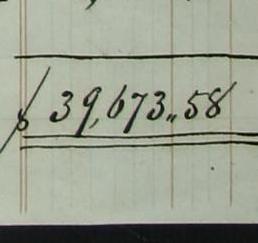 $ 39,673.. 58